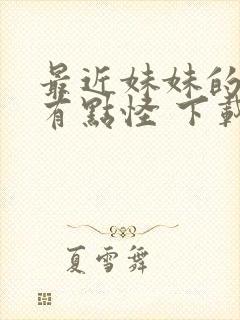 最近妹妹的
有點怪 下載
夏雪舞